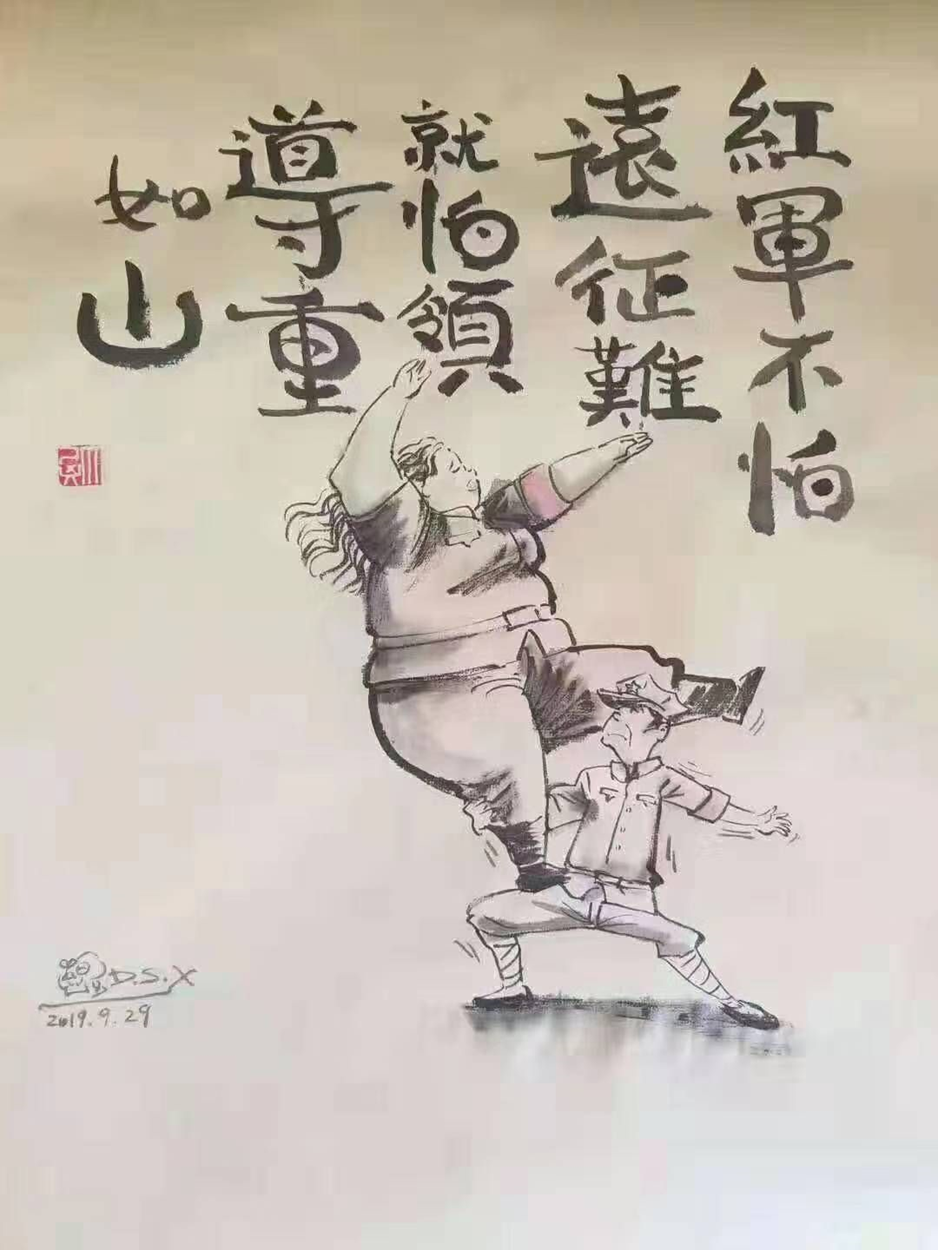 紅軍不怕
遠征難
就怕領
導重
如山
D.S.X
2019.9.29